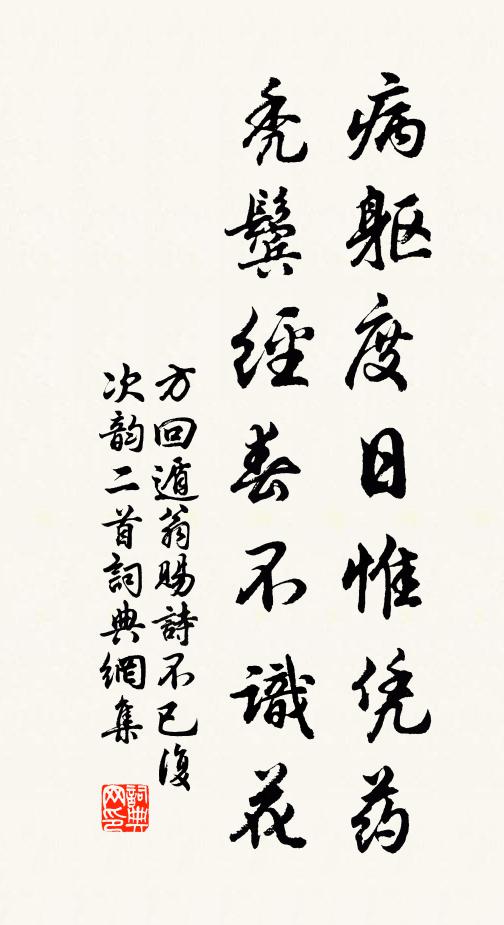 病躯度日惟凭药
秃鬓經春不識花
方回遁翁賜詩不已復
次韵二首詞典網集
詞典网印